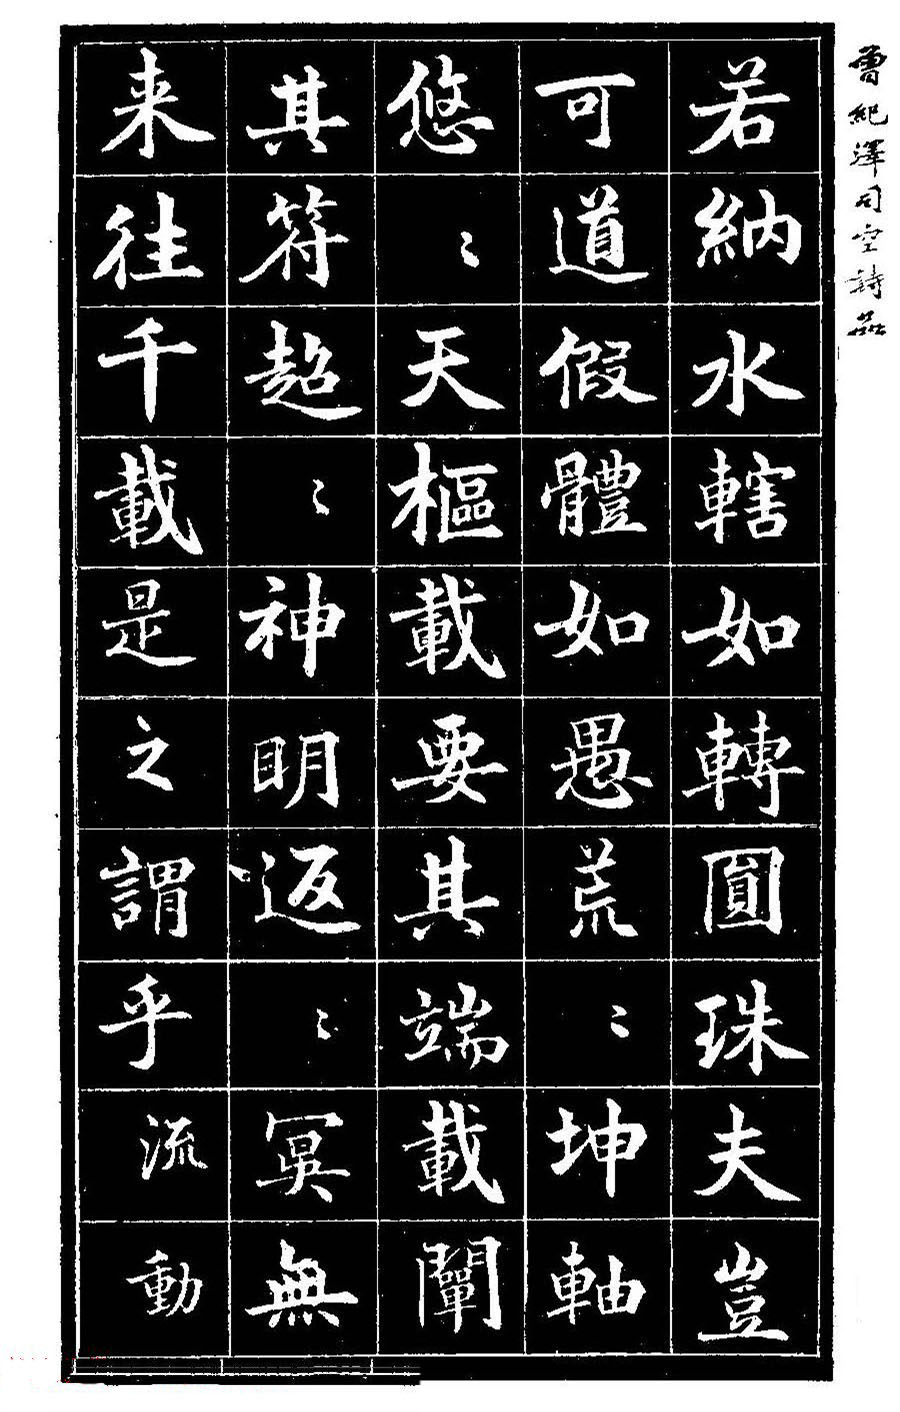 曾紀澤司空詩品
若納水轄如轉圓珠夫豈
可道假體如愚荒〻坤軸
悠〻天樞載要其端載闡
其符超〻神明返〻冥無
来往千載是之謂乎流動